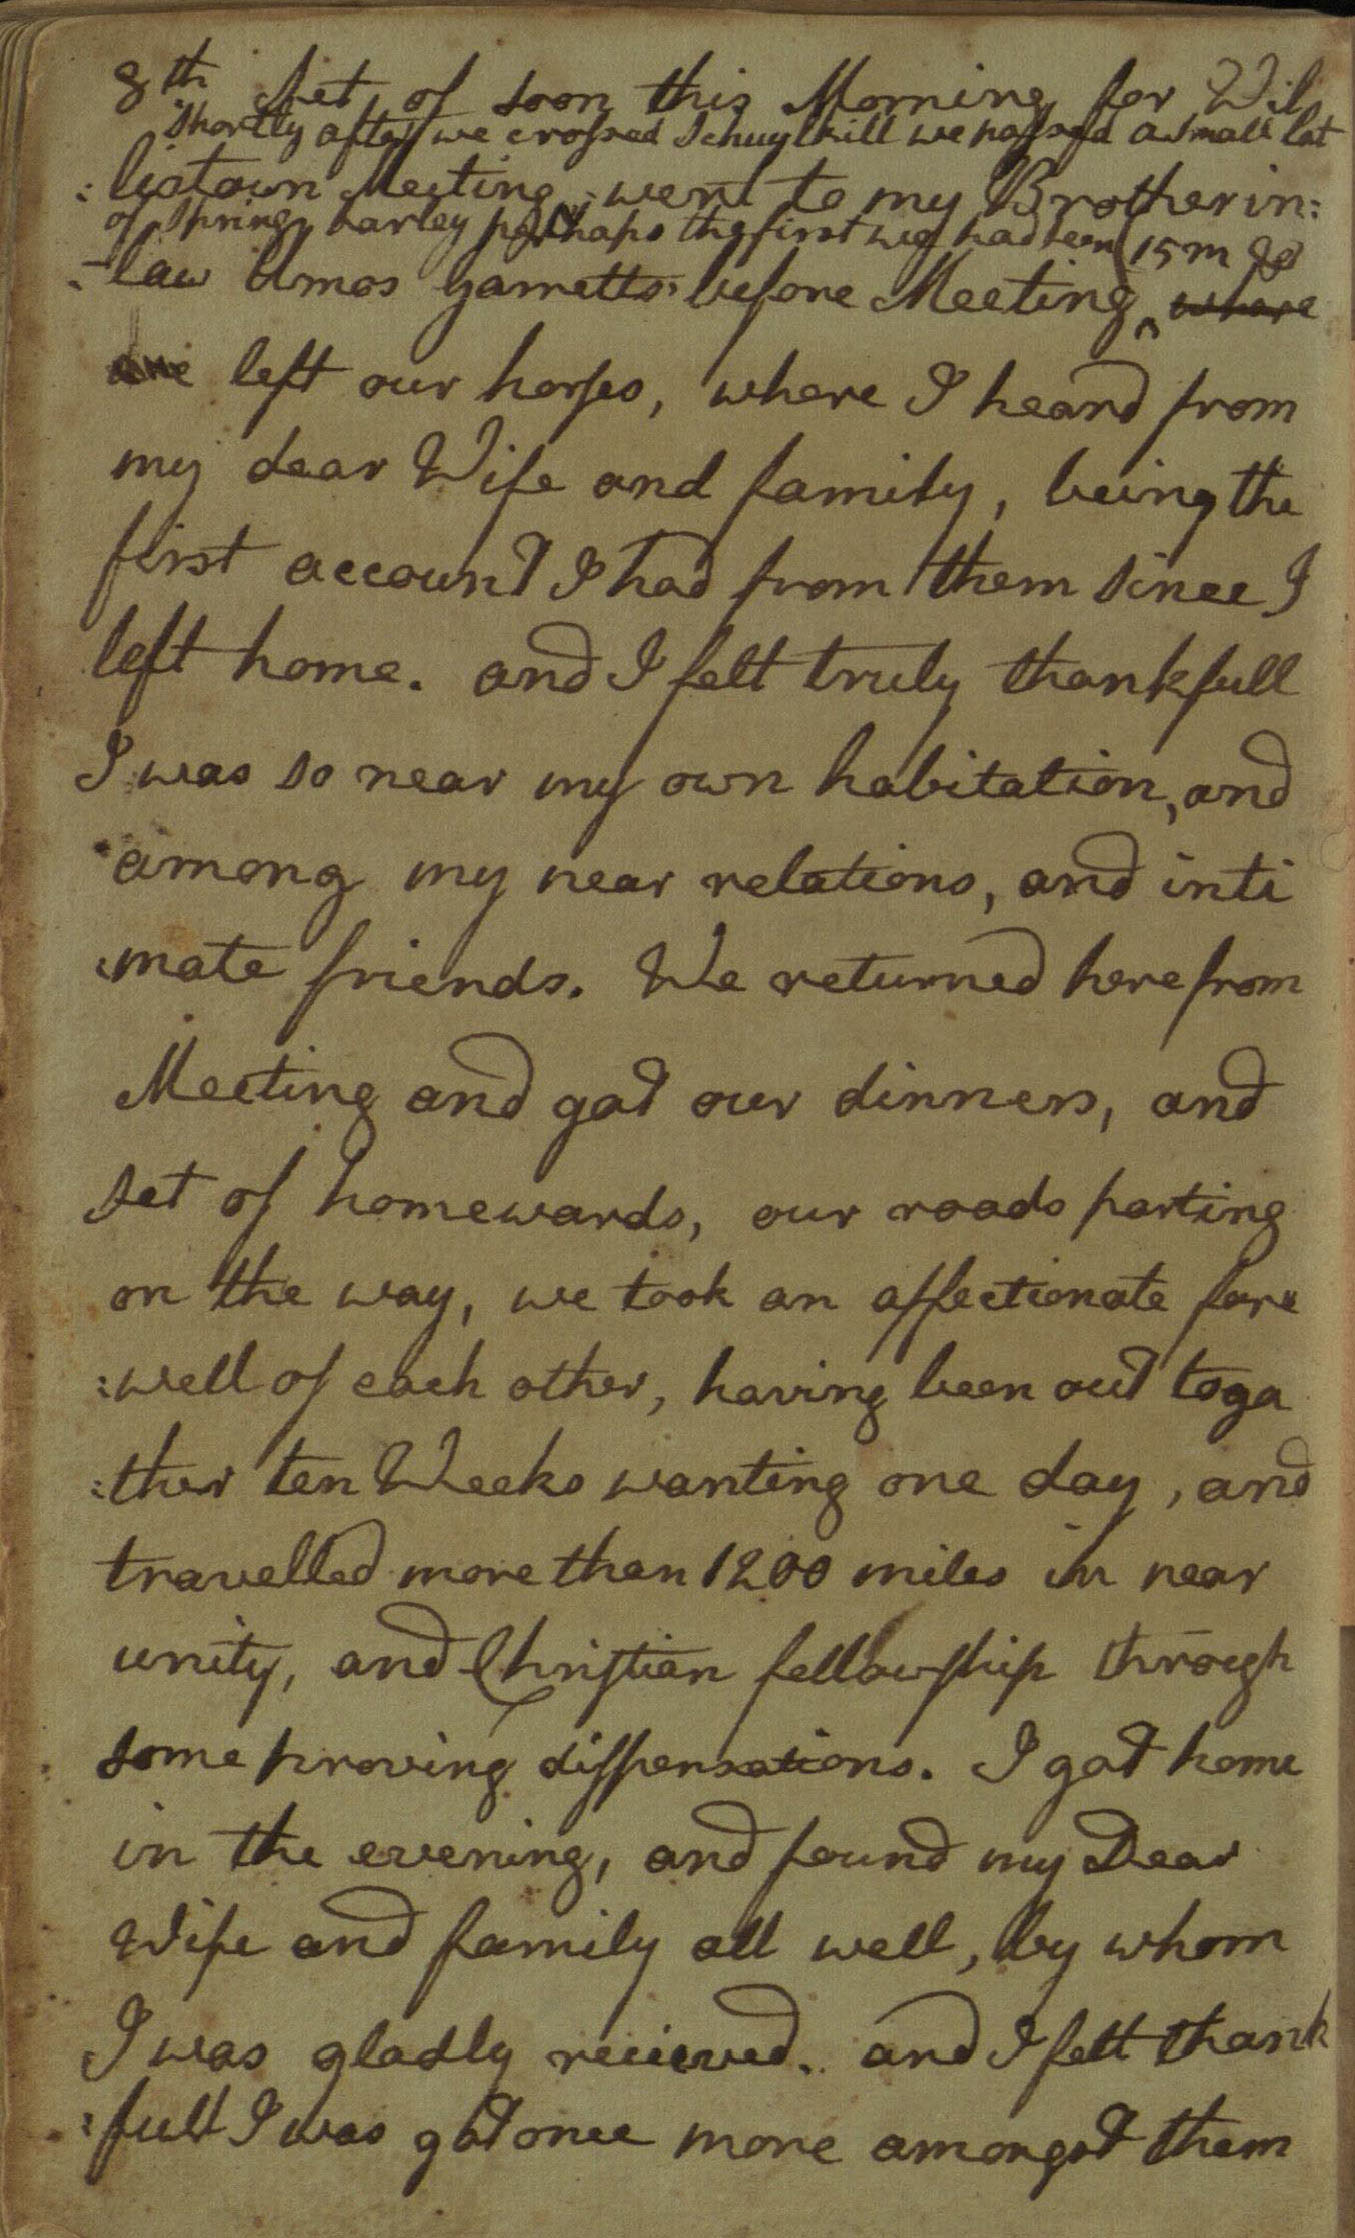 8th Set of soon this Morning for Wil
Shortly after we crossed Schuylkill we passed a small lot
:listown Meeting, went to my Brother in:
of Spring barley perhaps the first we had seen 15 m
-law Amos Garretts before Meeting ^ where
left our horses, where I heard from
my dear Wife and family, being the
first account I had from them since I
left home. and I felt truly thankfull
I was so near my own habitation, and
among my near relations, and inti
mate friends. We returned here from
Meeting and gat our dinners, and
set of homewards, our roads parting
on the way, we took an affectionate fare
:well of each other, having been out toga
:ther ten Weeks wanting one day, and
travelled more than 1200 miles in near
unity, and Christian fellowship through
some proving dispensations. I gat home
in the evening, and found my Dear
Wife and family all well, by whom
I was gladly recieved. and I felt thank
:full I was gat once more amongst them